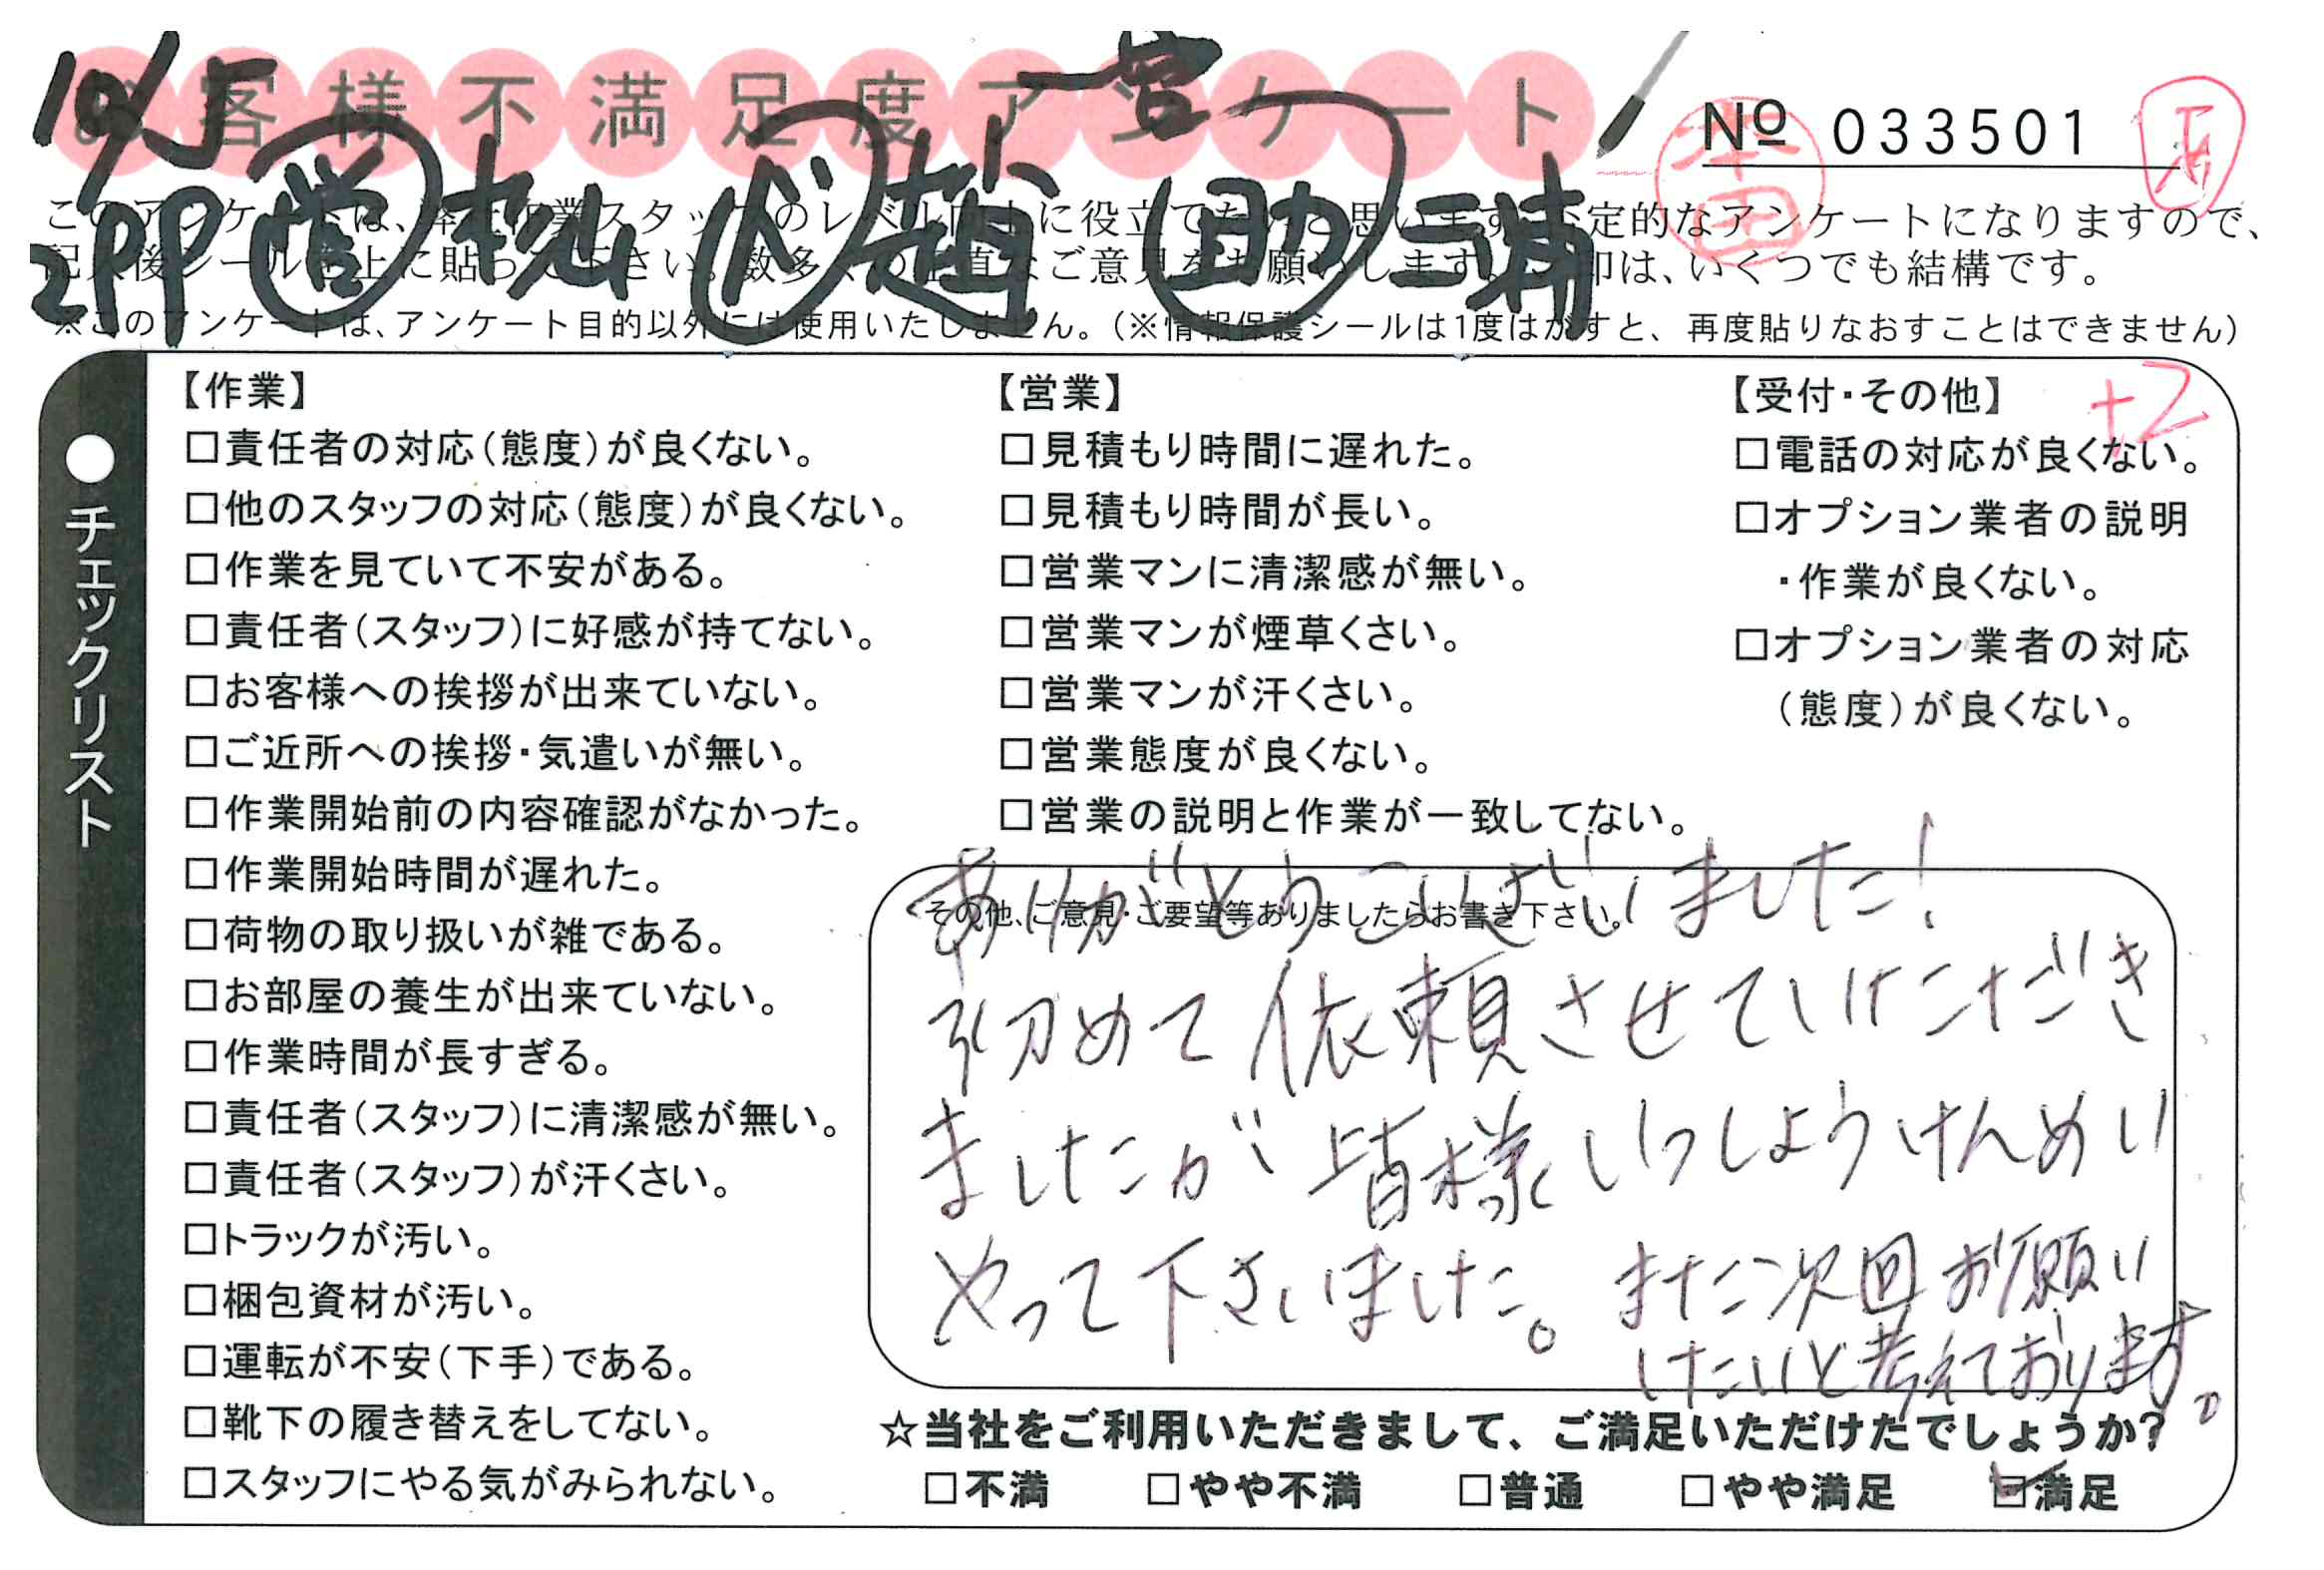 お客様不満足度アンケート
10/5
一宮
№ 033501
本田
2PP 営 杉山 ベ 趙 助 三浦
このアンケートは、弊社作業スタッフのレベル向上に役立てたいと思います。否定的なアンケートになりますので、
記入後シールを上に貼って下さい。数多くの正直なご意見をお願いします。レ印は、いくつでも結構です。
※このアンケートは、アンケート目的以外には使用いたしません。(※情報保護シールは1度はがすと、再度貼りなおすことはできません)
●チェックリスト
【作業】
□責任者の対応(態度)が良くない。
□他のスタッフの対応(態度)が良くない。
□作業を見ていて不安がある。
□責任者(スタッフ)に好感が持てない。
□お客様への挨拶が出来ていない。
□ご近所への挨拶・気遣いが無い。
□作業開始前の内容確認がなかった。
□作業開始時間が遅れた。
□荷物の取り扱いが雑である。
□お部屋の養生が出来ていない。
□作業時間が長すぎる。
□責任者(スタッフ)に清潔感が無い。
□責任者(スタッフ)が汗くさい。
□トラックが汚い。
□梱包資材が汚い。
□運転が不安(下手)である。
□靴下の履き替えをしてない。
□スタッフにやる気がみられない。
【営業】
□見積もり時間に遅れた。
□見積もり時間が長い。
□営業マンに清潔感が無い。
□営業マンが煙草くさい。
□営業マンが汗くさい。
□営業態度が良くない。
□営業の説明と作業が一致してない。
【受付・その他】
+2
□電話の対応が良くない。
□オプション業者の説明
・作業が良くない。
□オプション業者の対応
(態度)が良くない。
その他、ご意見・ご要望等ありましたらお書き下さい。
ありがとうございました!
初めて依頼させていただき
ましたが皆様いっしょうけんめい
やって下さいました。また次回お願い
したいと考えております。
☆当社をご利用いただきまして、ご満足いただけたでしょうか?
□不満 □やや不満 □普通 □やや満足 ☑満足